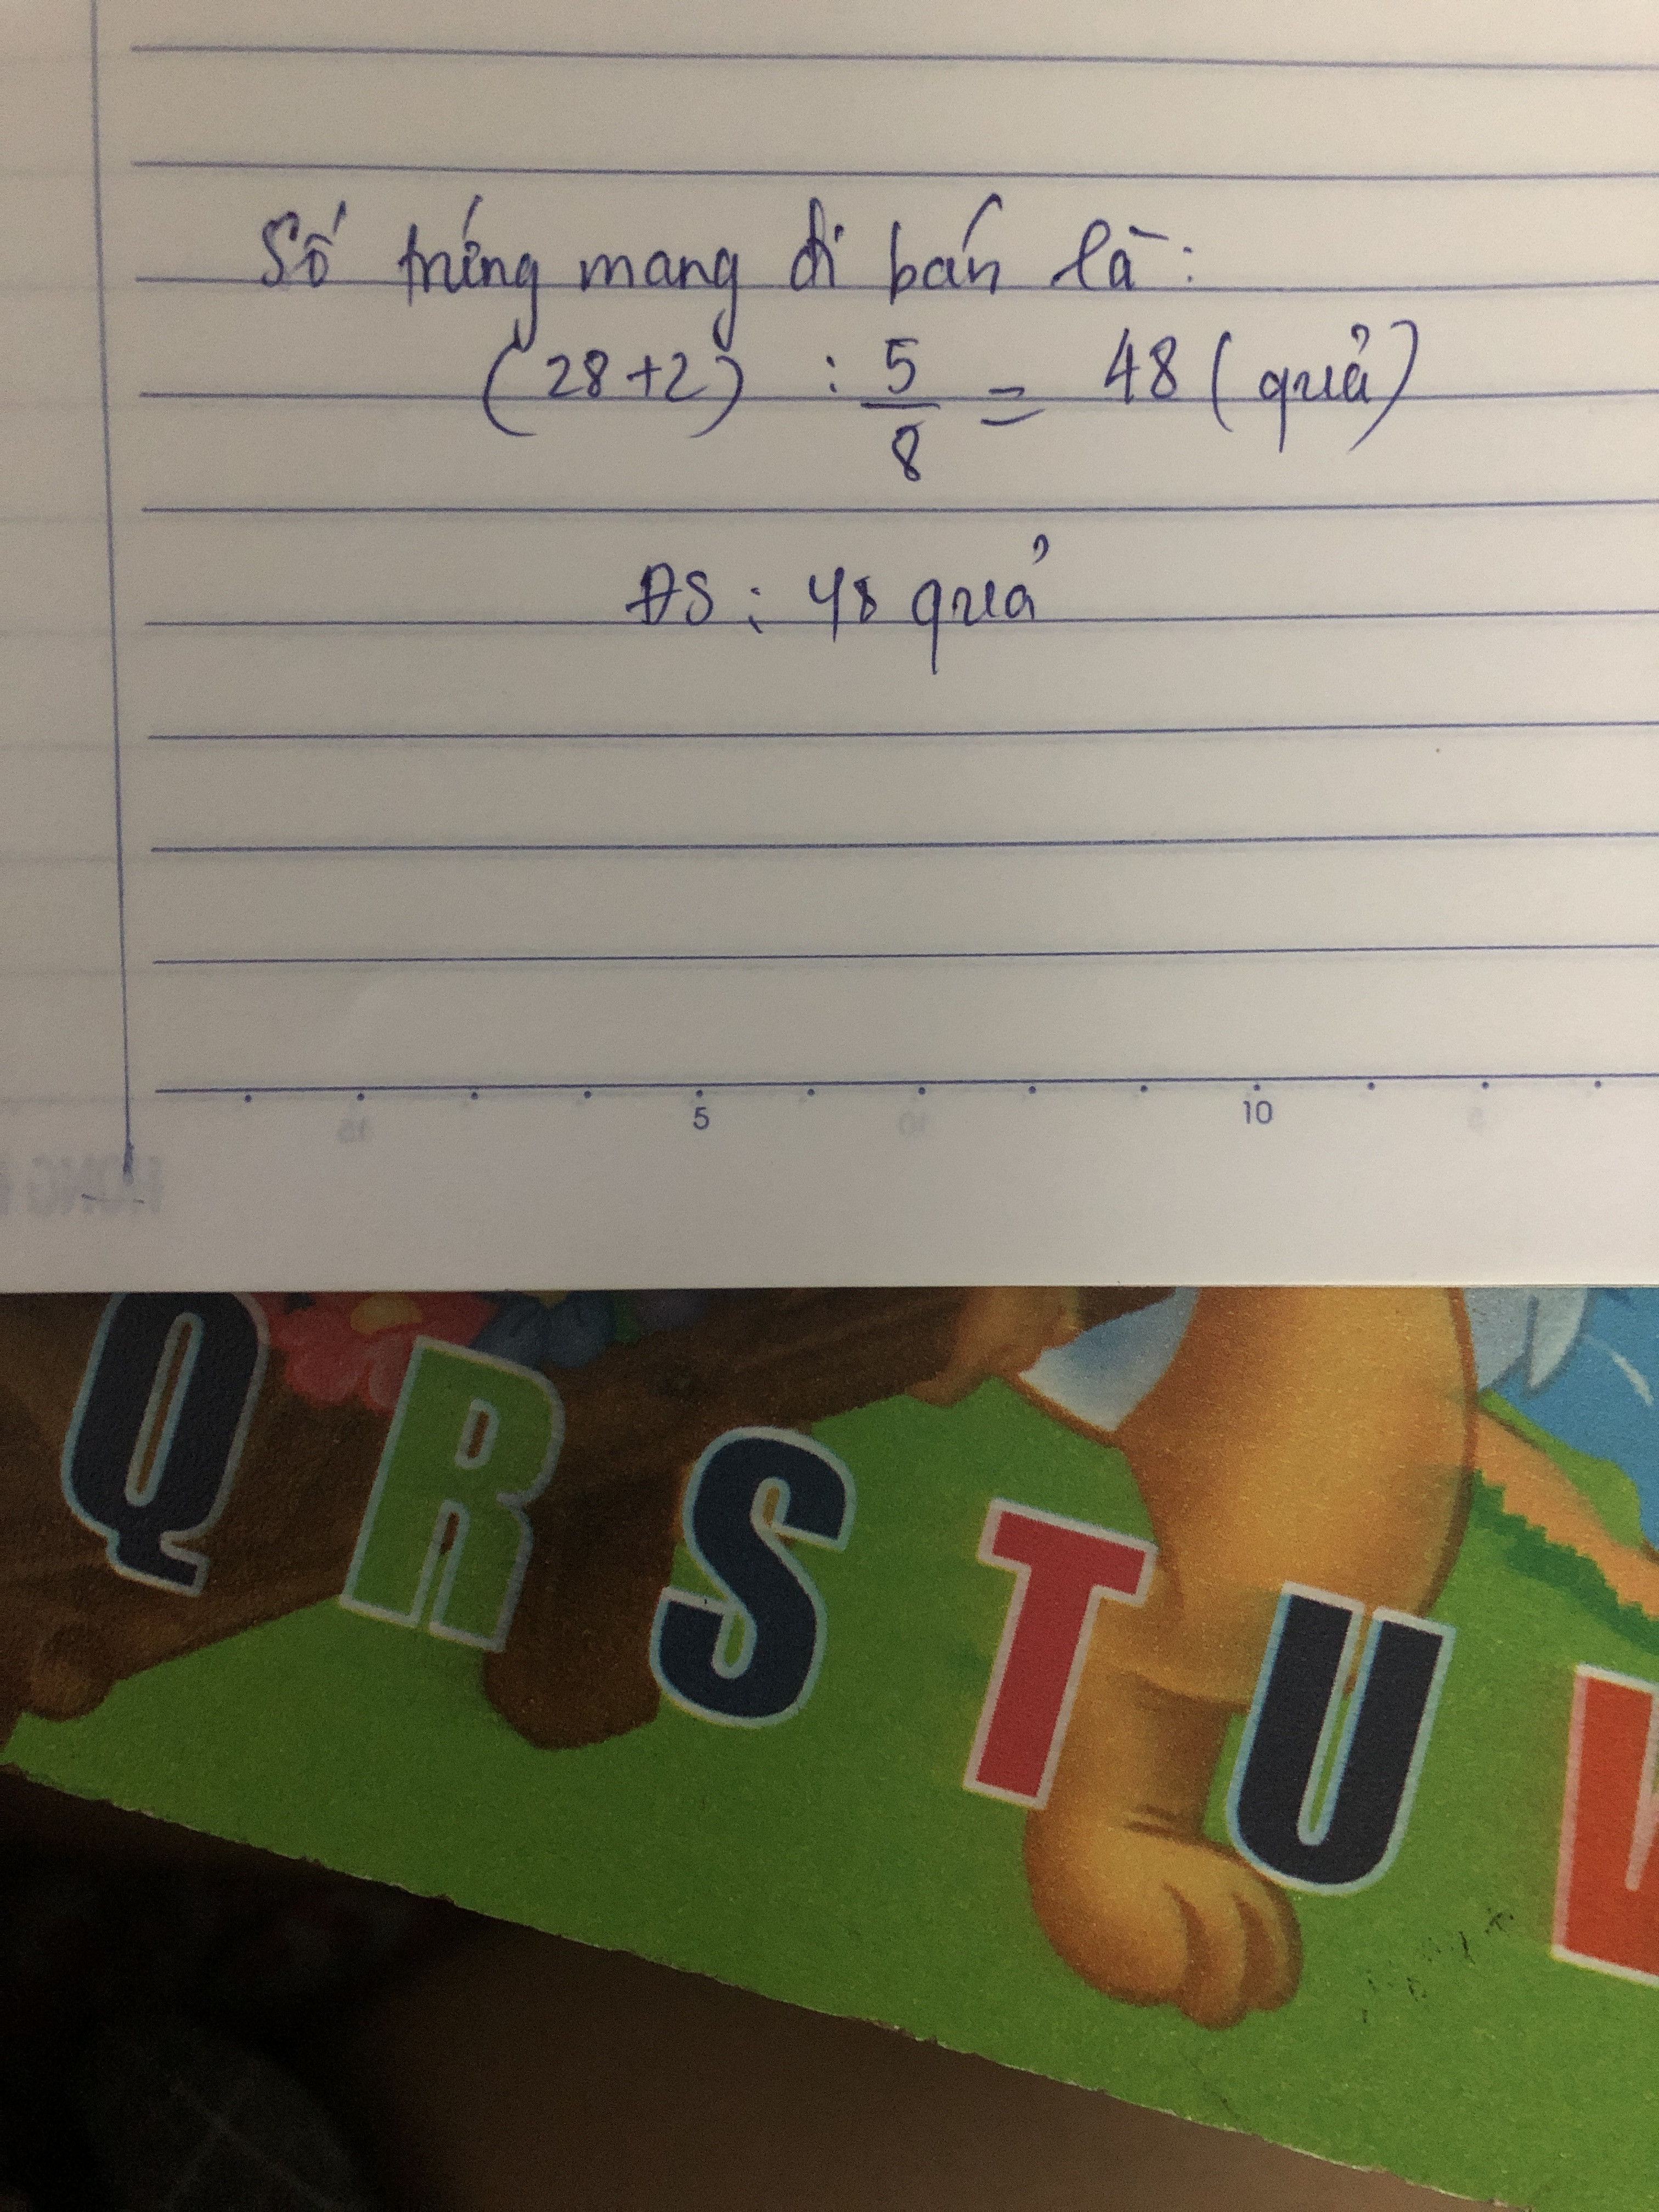 Số trứng mang đi bán là:
(28+2) : 5/8 = 48 (quả)
ĐS: 48 quả
5 10
Q R S T U